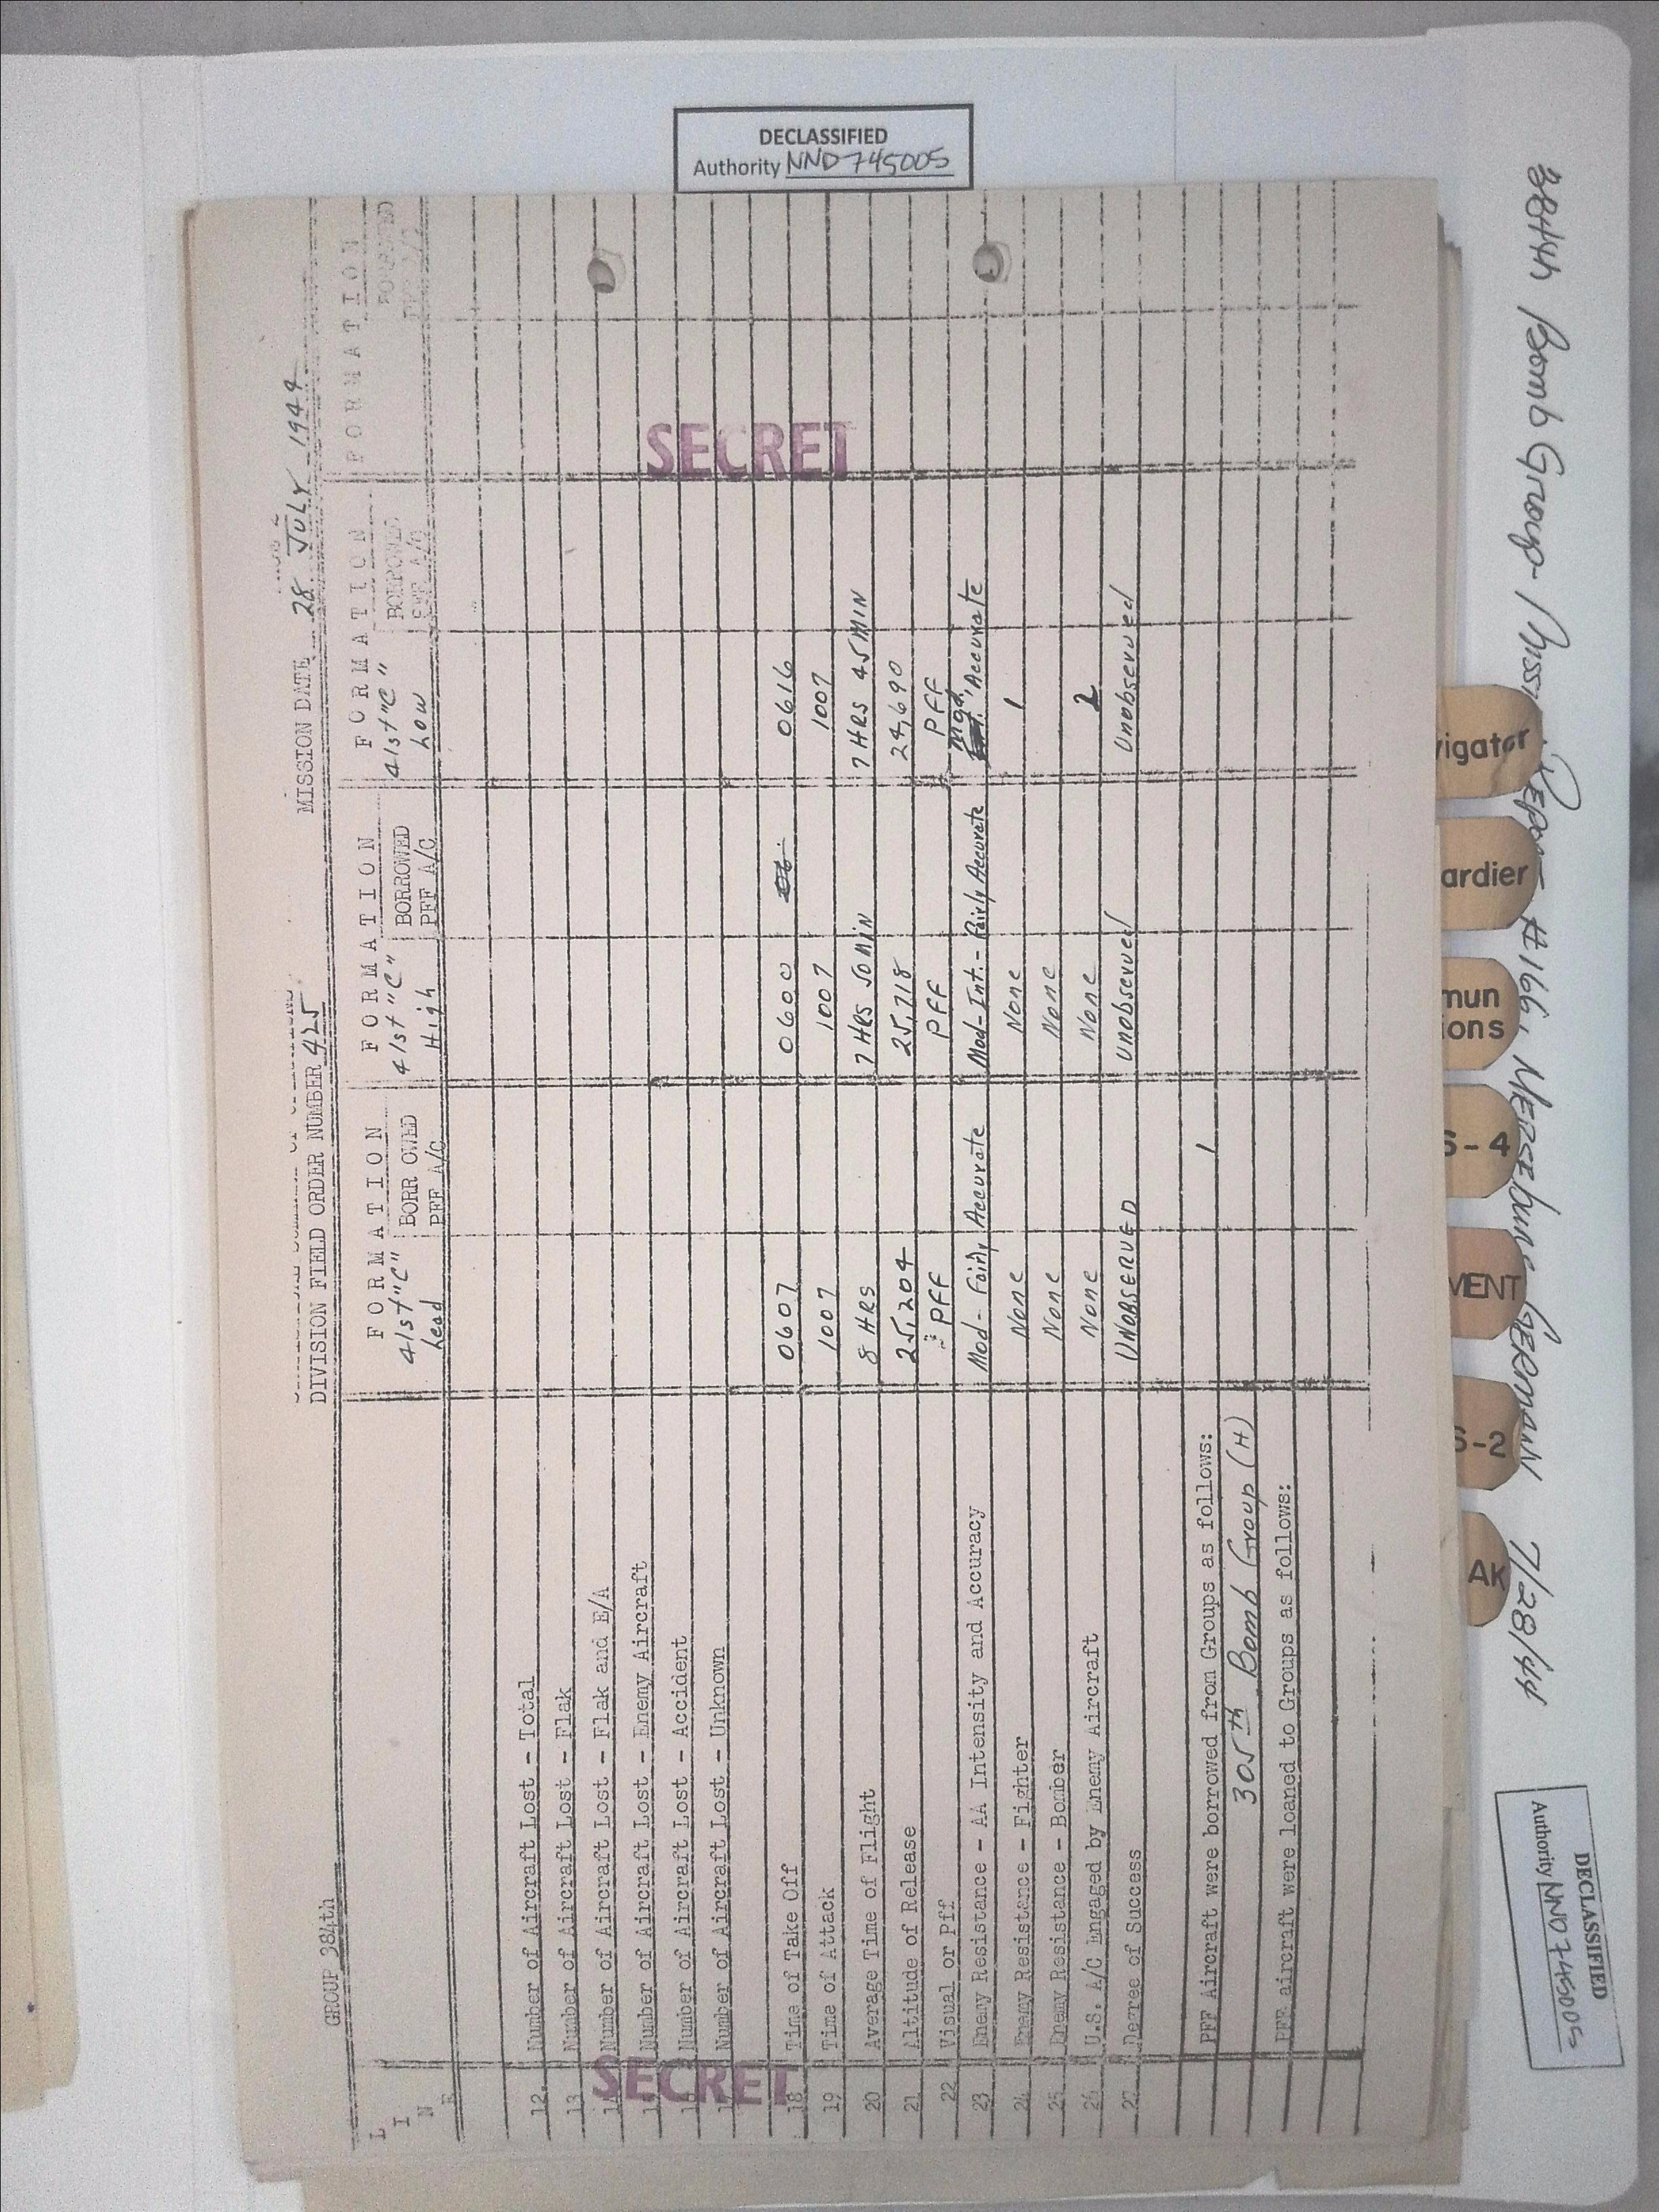 DECLASSIFIED
Authority NND 745005
MISSION DATE 28 JULY 1944
DIVISION FIELD ORDER NUMBER 425
GROUP 384th
LINE
FORMATION FORMATION FORMATION FORMATION
41st "C" 41st "C" 41st "C"
Lead High Low
BORR OWED BORROWED BORROWED BORROWED
PFF A/C PFF A/C PFF A/C PFF A/C
12. Number of Aircraft Lost - Total
13 Number of Aircraft Lost - Flak
14 Number of Aircraft Lost - Flak and E/A
15 Number of Aircraft Lost - Enemy Aircraft
16 Number of Aircraft Lost - Accident
17 Number of Aircraft Lost - Unknown
18 Time of Take Off 0607 0600 0616
19 Time of Attack 1007 1007 1007
20 Average Time of Flight 8 HRS 7 HRS 50 MIN 7 HRS 45 MIN
21 Altitude of Release 25,204 25,718 24,690
22 Visual or Pff PFF PFF PFF
23 Enemy Resistance - AA Intensity and Accuracy Mod - Fairly Accurate Mod - Int. - Fairly Accurate Mod, Accurate
24 Enemy Resistance - Fighter None None 1
25 Enemy Resistance - Bomber None None
26 U.S. A/C Engaged by Enemy Aircraft None None 2
27 Degree of Success UNOBSERVED Unobserved Unobserved
PFF Aircraft were borrowed from Groups as follows: 1
305th Bomb Group (H)
PFF aircraft were loaned to Groups as follows:
SECRET
SECRET
384th Bomb Group - Mission Report #166, Merseburg German 7/28/44
vigator
ardier
mun
ions
S-4
MENT
S-2
AK
DECLASSIFIED
Authority NND 745005